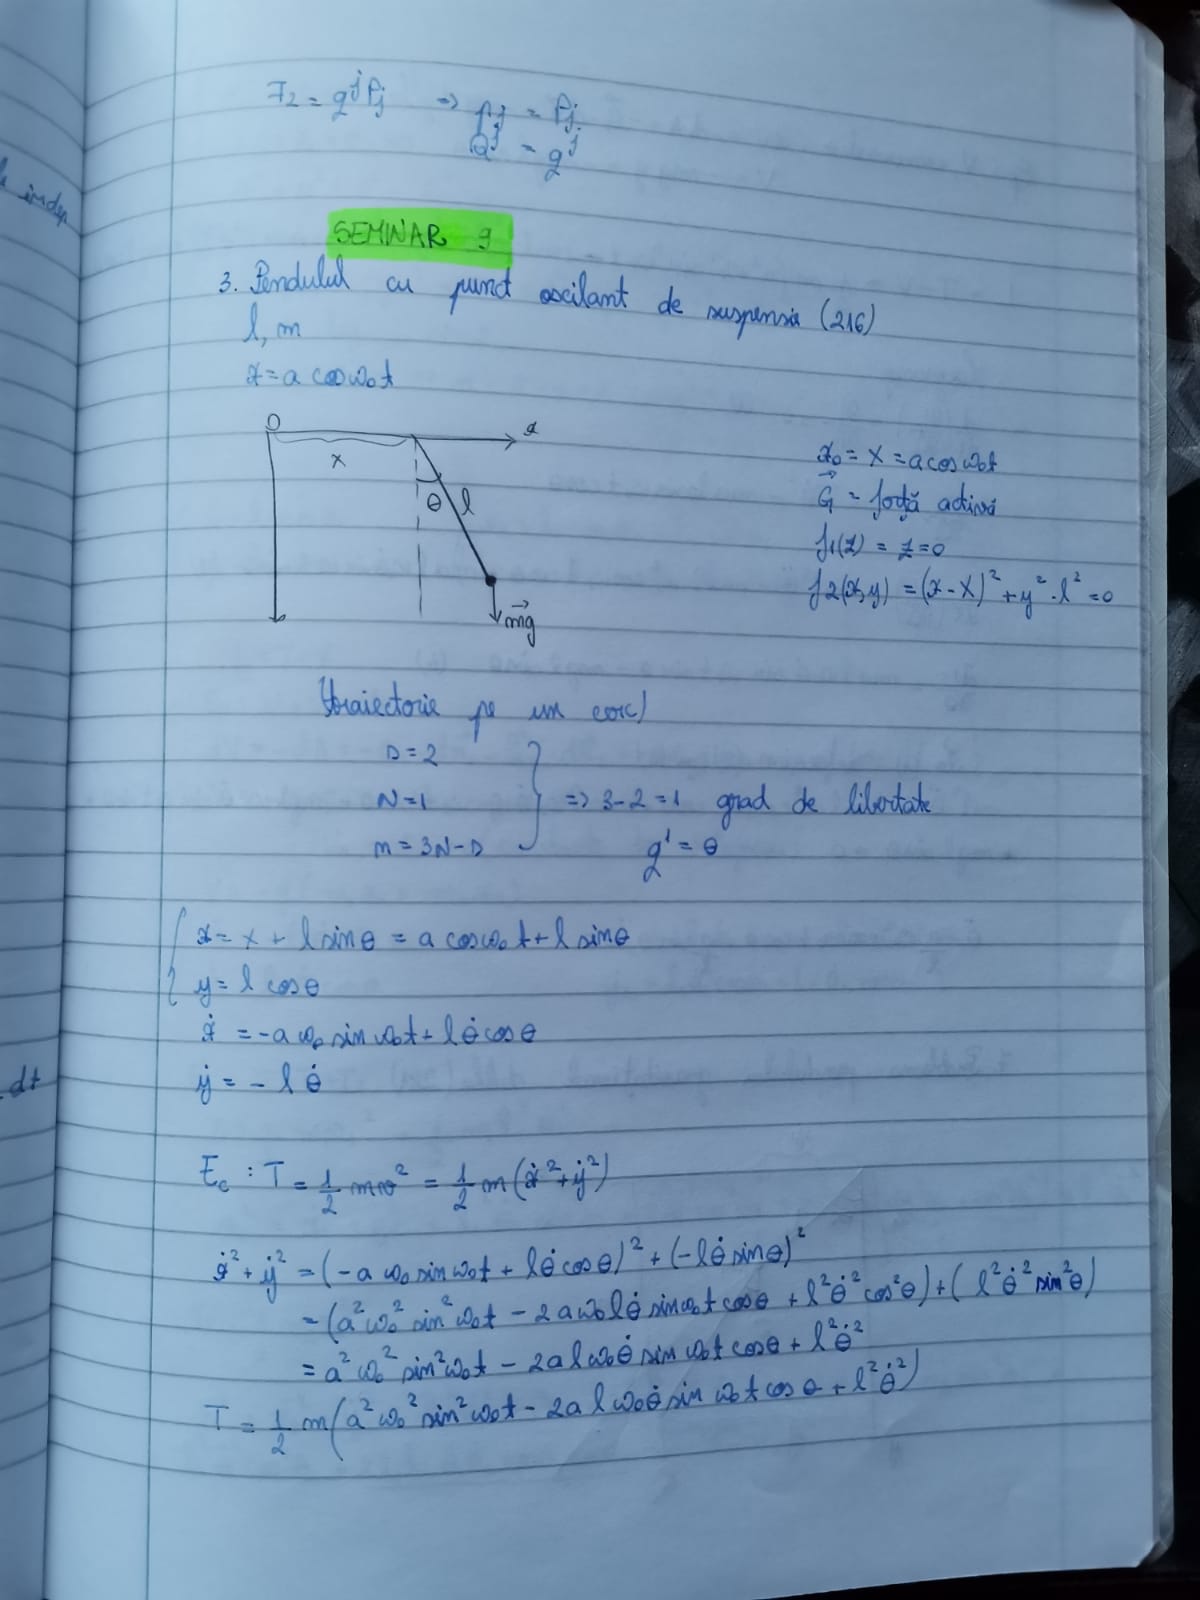 F₂ = q^j P_j => p_j = P_j
Q^j = q^j
indep
SEMINAR 9
3. Pendulul cu punct oscilant de suspensie (216)
l, m
x = a cos ω₀t
O
x
X
θ
l
mg
x₀ = X = a cos ω₀t
G = forță activă
f₁(z) = z = 0
f₂(x,y) = (x - X)² + y² - l² = 0
traiectorie pe un cerc)
D = 2
N = 1
m = 3N - D
=> 3 - 2 = 1 grad de libertate
q¹ = θ
x = X + l sin θ = a cos ω₀ t + l sin θ
y = l cos θ
ẋ = -a ω₀ sin ω₀t + l θ̇ cos θ
dt
ẏ = - l θ̇
E_c : T = 1/2 mv² = 1/2 m (ẋ² + ẏ²)
ẋ² + ẏ² = (-a ω₀ sin ω₀t + lθ̇ cos θ)² + (-lθ̇ sin θ)²
= (a² ω₀² sin² ω₀t - 2 a ω₀ l θ̇ sin ω₀t cos θ + l² θ̇² cos² θ) + (l² θ̇² sin² θ)
= a² ω₀² sin² ω₀t - 2 a l ω₀ θ̇ sin ω₀t cos θ + l² θ̇²
T = 1/2 m (a² ω₀² sin² ω₀t - 2a l ω₀ θ̇ sin ω₀t cos θ + l² θ̇²)